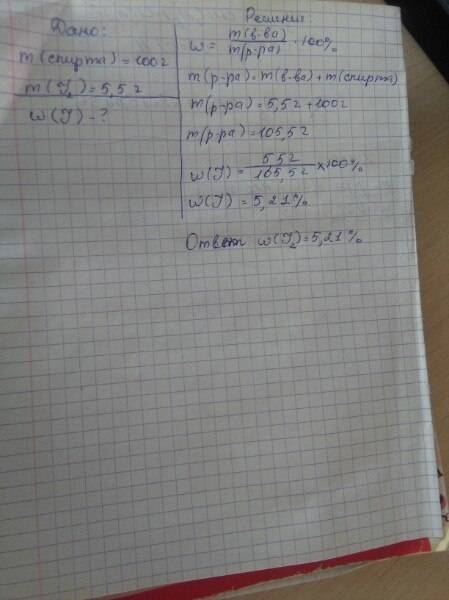 Дано:
m(спирта) = 100г
m(J₂) = 5,5г
w(J) - ?
Решение:
w = m(в-ва) / m(р-ра) · 100%
m(р-ра) = m(в-ва) + m(спирта)
m(р-ра) = 5,5г + 100г
m(р-ра) = 105,5г
w(J) = 5,5г / 105,5г × 100%
w(J) = 5,21%
Ответ w(J₂) = 5,21%